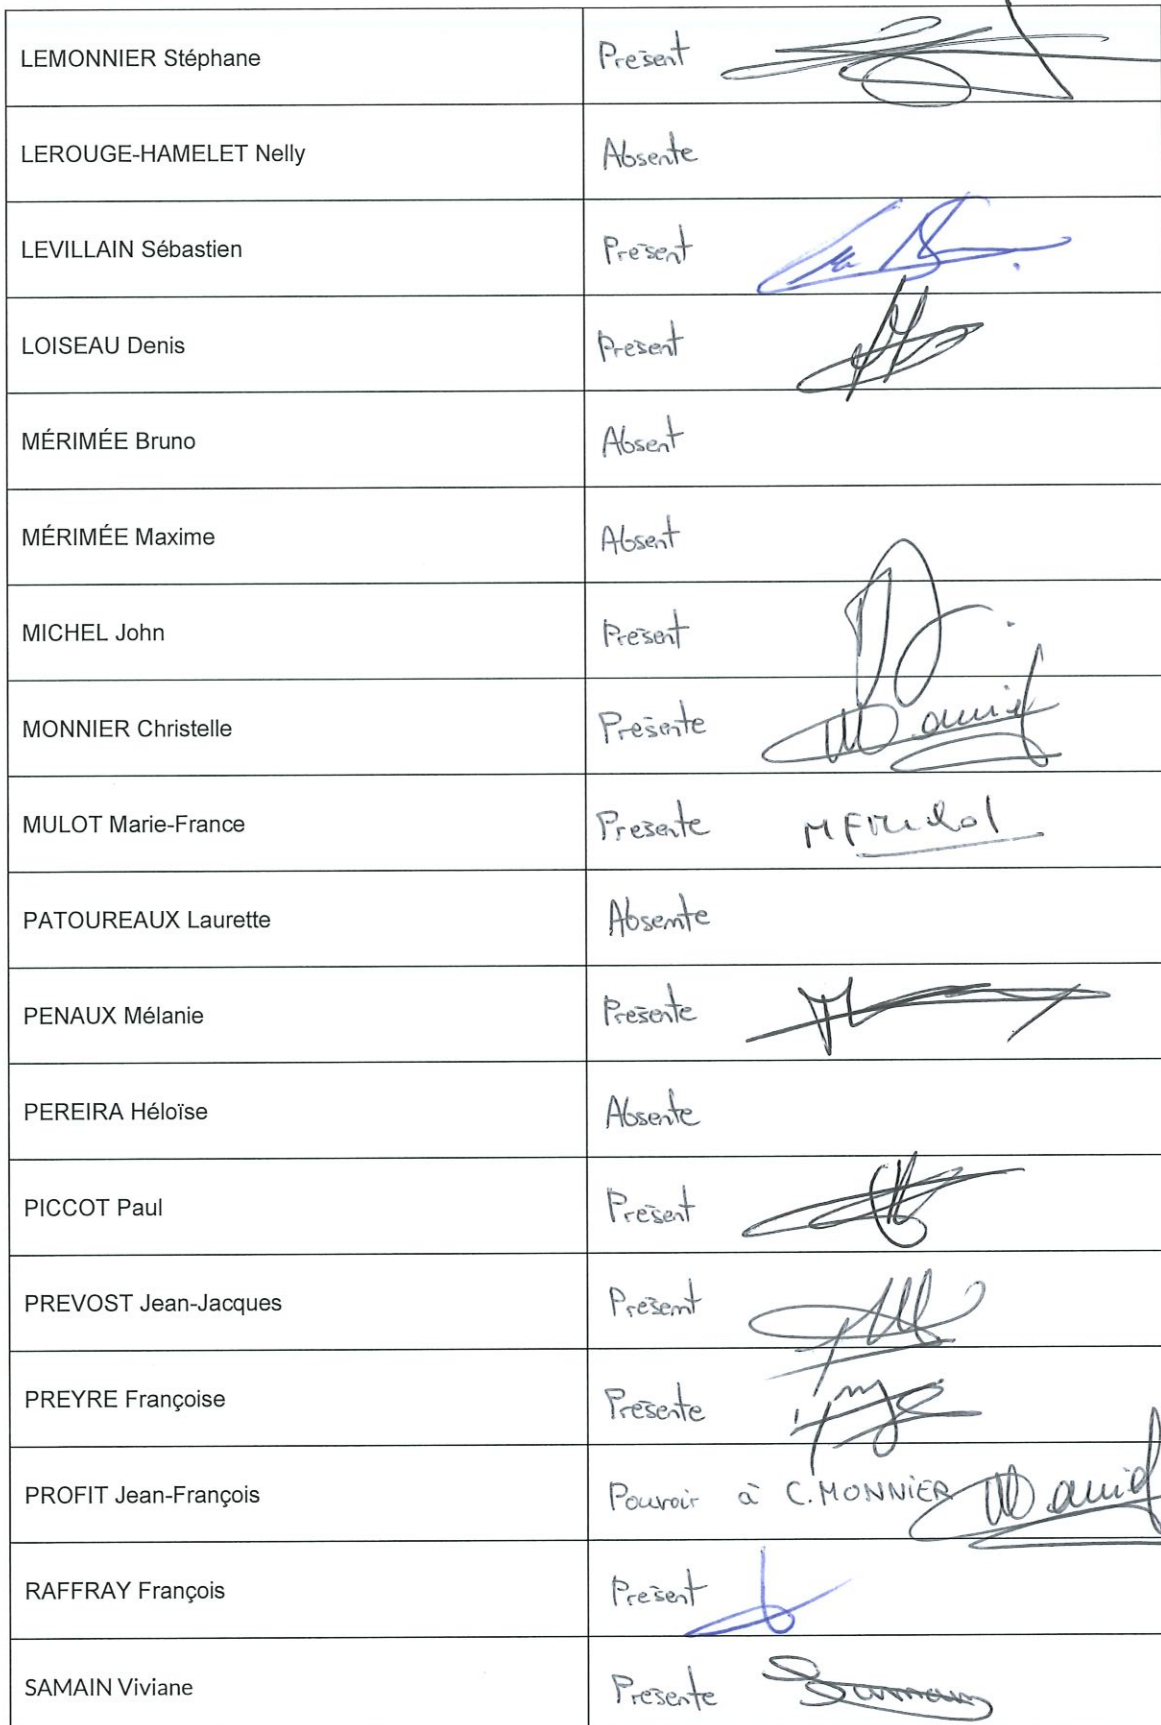 LEMONNIER Stéphane Présent
LEROUGE-HAMELET Nelly Absente
LEVILLAIN Sébastien Présent
LOISEAU Denis Présent
MÉRIMÉE Bruno Absent
MÉRIMÉE Maxime Absent
MICHEL John Présent
MONNIER Christelle Présente
MULOT Marie-France Présente
PATOUREAUX Laurette Absente
PENAUX Mélanie Présente
PEREIRA Héloïse Absente
PICCOT Paul Présent
PREVOST Jean-Jacques Présent
PREYRE Françoise Présente
PROFIT Jean-François Pouvoir à C. MONNIER
RAFFRAY François Présent
SAMAIN Viviane Présente